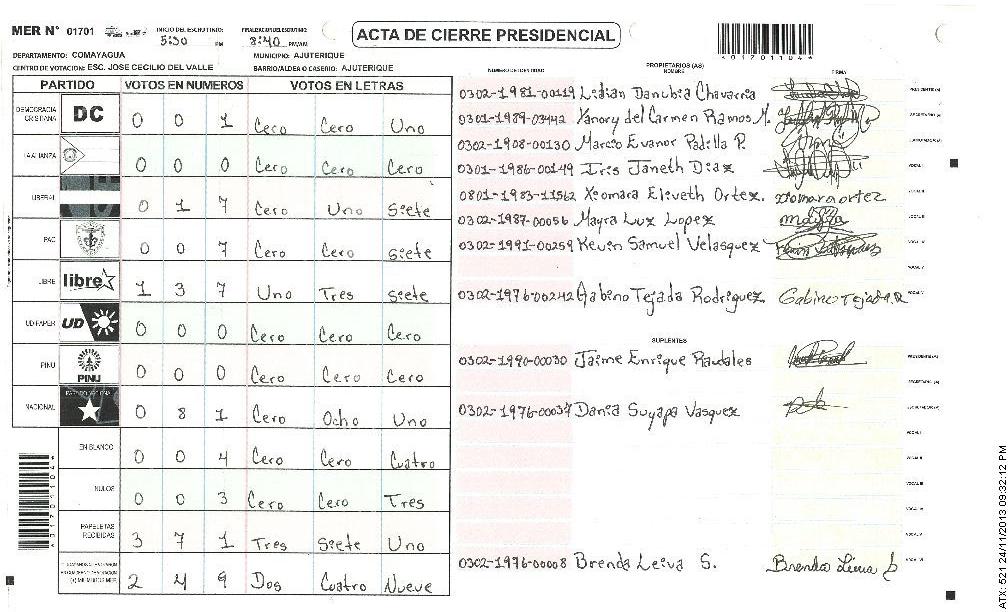 MER N° 01701
INICIO DEL ESCRUTINIO:
5:30 PM
FINALIZACION DEL ESCRUTINIO:
8:40 PM/AM
ACTA DE CIERRE PRESIDENCIAL
*01701104*
DEPARTAMENTO: COMAYAGUA
MUNICIPIO: AJUTERIQUE
CENTRO DE VOTACION: ESC. JOSE CECILIO DEL VALLE
BARRIO/ALDEA O CASERIO: AJUTERIQUE
PARTIDO VOTOS EN NUMEROS VOTOS EN LETRAS
DEMOCRACIA CRISTIANA DC 0 0 1 Cero Cero Uno
LA ALIANZA 0 0 0 Cero Cero Cero
LIBERAL 0 1 7 Cero Uno Siete
PAC 0 0 7 Cero Cero Siete
LIBRE libre 1 3 7 Uno Tres Siete
UD FAPER UD 0 0 0 Cero Cero Cero
PINU PINU 0 0 0 Cero Cero Cero
NACIONAL PARTIDO NACIONAL 0 8 1 Cero Ocho Uno
EN BLANCO 0 0 4 Cero Cero Cuatro
NULOS 0 0 3 Cero Cero Tres
PAPELETAS RECIBIDAS 3 7 1 Tres Siete Uno
2 4 9 Dos Cuatro Nueve
*01701104*
NUMERO DE IDENTIDAD
PROPIETARIOS (AS)
NOMBRE
FIRMA
0302-1981-00119 Lidian Danubia Chavarria PRESIDENTE(A)
0301-1989-03442 Yanory del Carmen Ramos M. SECRETARIO (A)
0302-1908-00130 Marcio Evanor Padilla P. ESCRUTADOR(A)
0301-1986-00149 Iris Janeth Diaz VOCAL I
0801-1983-11562 Xiomara Eliveth Ortez. xiomara ortez VOCAL II
0302-1987-00056 Mayra Luz Lopez VOCAL III
0302-1991-00259 Kevin Samuel Velasquez VOCAL IV
VOCAL V
0302-1976-00242 Gabino Tejada Rodriguez. Gabino Tejada R
SUPLENTES
0302-1990-00030 Jaime Enrique Raudales PRESIDENTE(A)
SECRETARIO (A)
0302-1976-00037 Dania Suyapa Vasquez ESCRUTADOR(A)
VOCAL I
VOCAL II
VOCAL III
VOCAL IV
VOCAL V
0302-1976-00008 Brenda Leiva S. VOCAL VI
ATX: 521 24/11/2013 09:32:12 PM